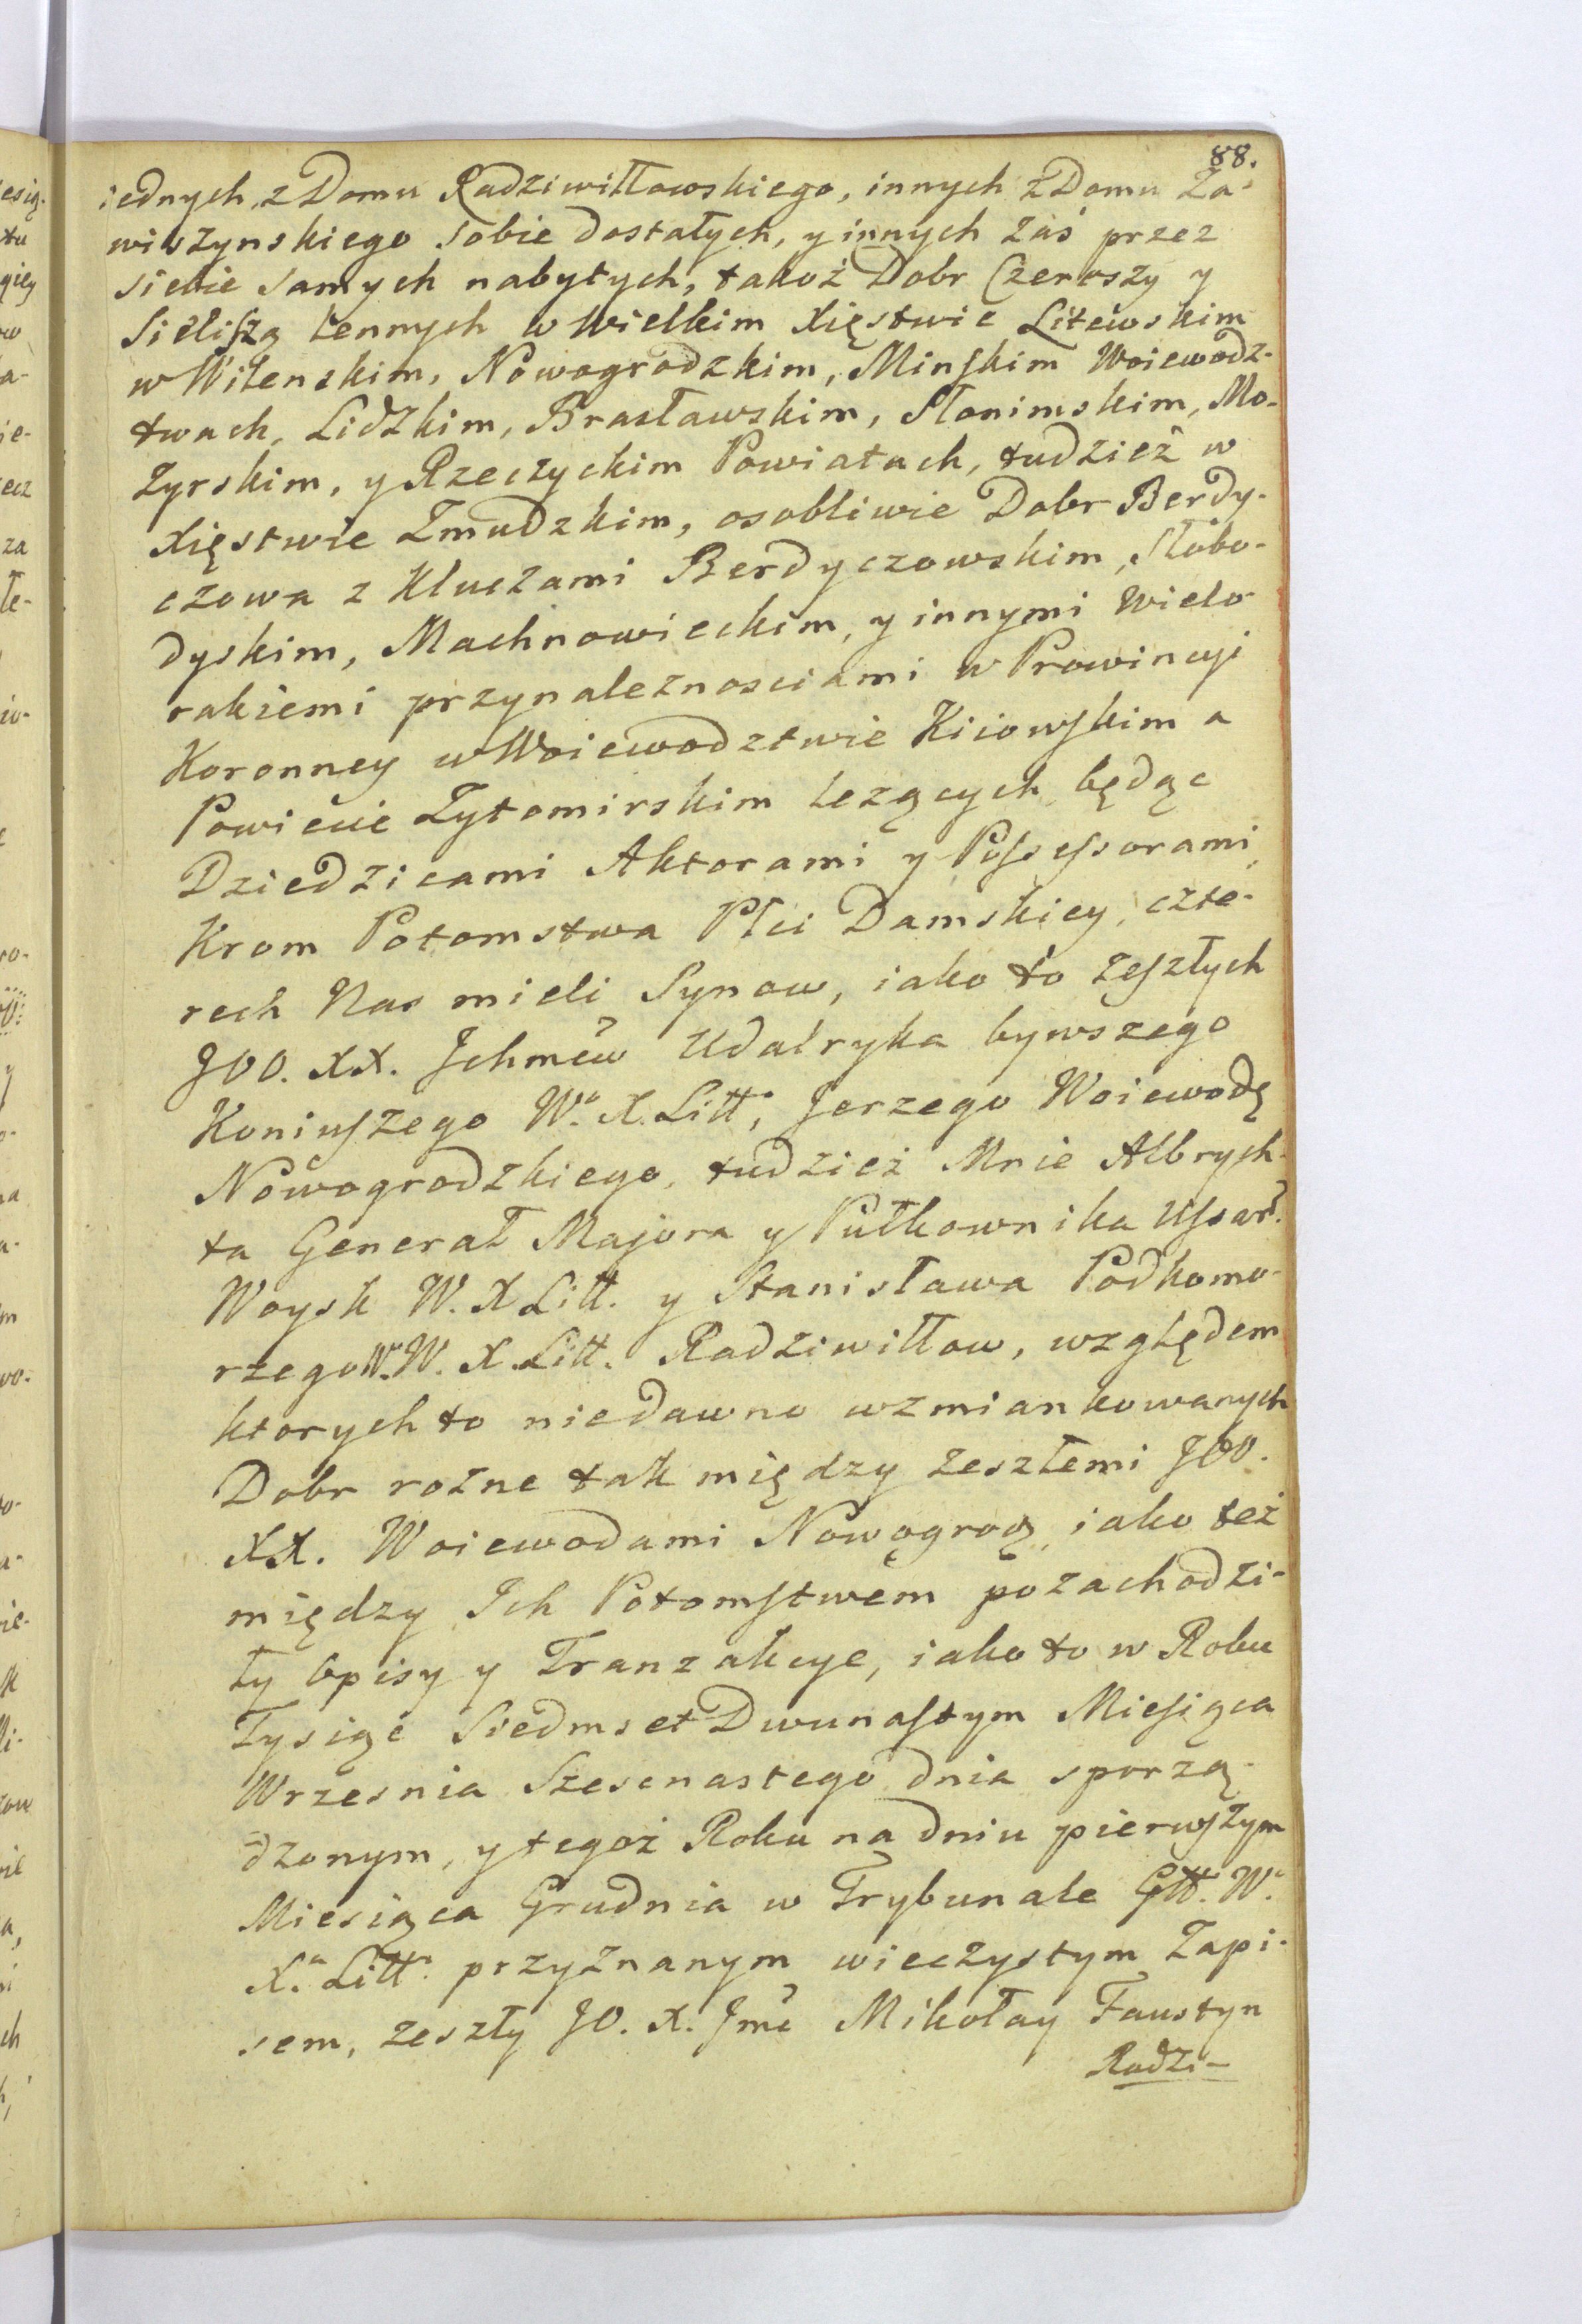 88.
iednych, z Domu Radziwiłłowskiego, innych z Domu Za-
wiszynskiego sobie dostałych, y innych zaś przez
siebie samych nabytych, takoż Dobr Czereszy y
Sieliszcz lennych w Wielkim Xięstwie Litewskim
w Wilenskim, Nowogrodzkim, Minskim Woiewodz-
twach, Lidzkim, Brasławskim, Słonimskim, Mo-
zyrskim, y Rzeczyckim Powiatach, tudzież w
Xięstwie Zmudzkim, osobliwie Dobr Berdy-
czowa z Kluczami Berdyczowskim, Słobo-
dyskim, Machnowieckim, y innymi Wielo-
rakiemi przynaleznosciami w Prowincyi
Koronney w Woiewodztwie Kiiowskim a
Powiecie Zytomirskim lezących będąc
Dziedzicami Aktorami y Possessorami,
Krom Potomstwa Płci Damskiey, czte-
rech Nas mieli Synow, iako to zeszłych
JOO. XX. Jchmċw Udalryka bywszego
Koniuszego W.º X. Litt:, Jerzego Woiewodę
Nowogrodzkiego, tudzież Mnie Albrych-
ta Generał Majora y Pułkownika Ussar.
Woysk W. X Litt. y Stanisława Podkomo-
rzego W. W. X. Litt. Radziwiłłow, względem
ktorych to niedawno wzmiankowanych
Dobr rożne tak między zeszłemi JOO.
XX. Woiewodami Nowogrodz, iako też
między Ich Potomstwem pozachodzi-
ły Opisy y Tranzakcye, iako to w Roku
Tysiąc Siedmset Dwunastym Miesiąca
Wrzesnia Szesnastego dnia sporzą-
dzonym, y tegoż Roku na dniu pierwszym
Miesiąca Grudnia w Trybunale Głł. W.º
X.º Litt: przyznanym wieczystym Zapi-
sem, zeszły JO. X. Jmċ Mikołay Faustyn
Radzi-